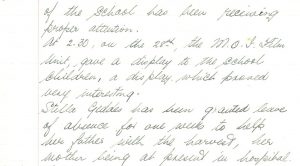 of the school has been receiving
proper attention.
At 2.30, on the 28th, the M.O.I. Film
Unit, gave a display to the school
children, a display, which proved
very interesting.
Stella Geddes has been granted leave
of absence for one week to help
her father with the harvest, her
mother being at present in hospital.